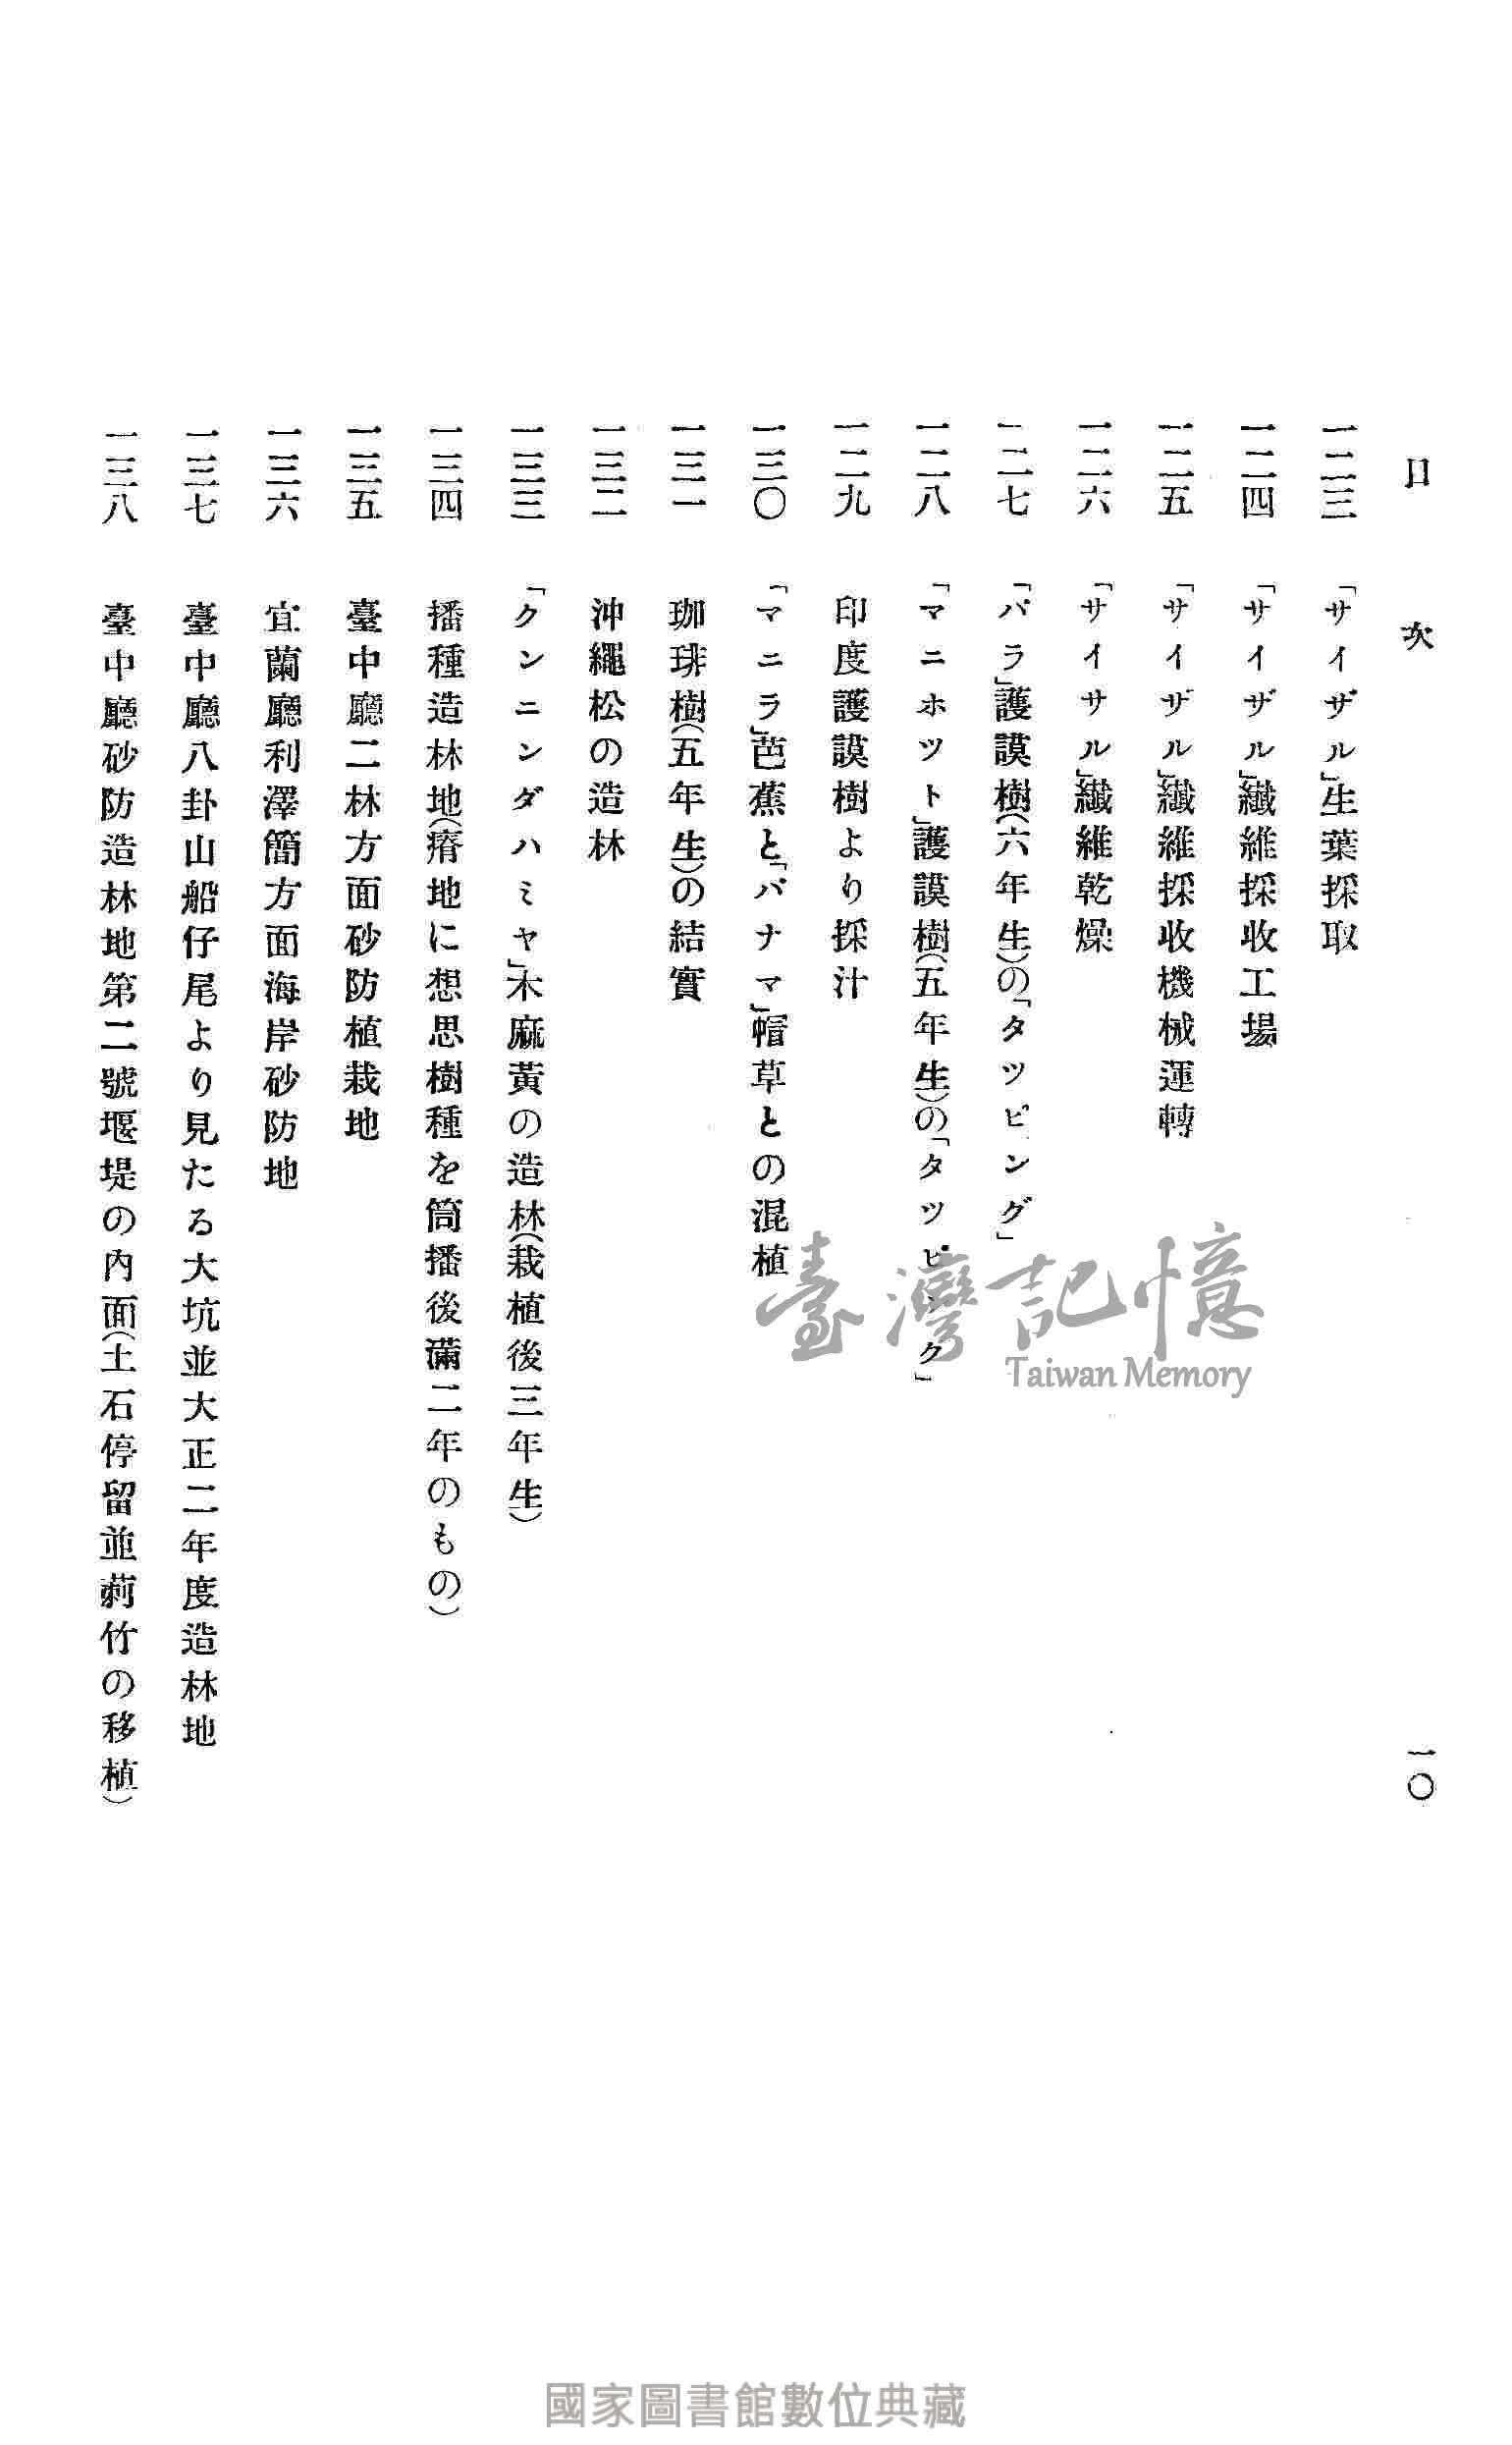 目次 一〇
一二三 「サイザル」生葉採取
一二四 「サイザル」纎維採收工場
一二五 「サイザル」纎維採收機械運轉
一二六 「サイサル」纎維乾燥
一二七 「パラ」護謨樹(六年生)の「タツピング」
一二八 「マニホツト」護謨樹(五年生)の「タツピング」
一二九 印度護謨樹より採汁
一三〇 「マニラ」芭蕉と「パナマ」帽草との混植
一三一 珈琲樹(五年生)の結實
一三二 沖繩松の造林
一三三 「クンニンダハミヤ」木麻黃の造林(栽植後三年生)
一三四 播種造林地(瘠地に想思樹種を筒播後滿二年のもの)
一三五 臺中廳二林方面砂防植栽地
一三六 宜蘭廳利澤簡方面海岸砂防地
一三七 臺中廳八卦山船仔尾より見たる大坑並大正二年度造林地
一三八 臺中廳砂防造林地第二號堰堤の內面(土石停留並莿竹の移植)
臺灣記憶
Taiwan Memory
國家圖書館數位典藏